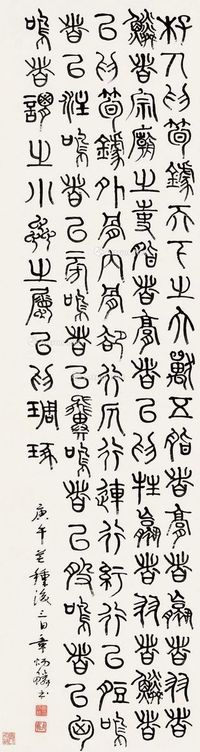 杍人為筍鐻天下之大獸五脂者膏者臝者羽者
鱗者宗廟之事脂者膏者以為牲臝者羽者鱗者
以為筍鐻外骨內骨卻行仄行連行紆行以脰鳴
者以注鳴者以旁鳴者以翼鳴者以股鳴者以匈
鳴者謂之小蟲之屬以為琱琢
庚午芒種後三日章炳麟書